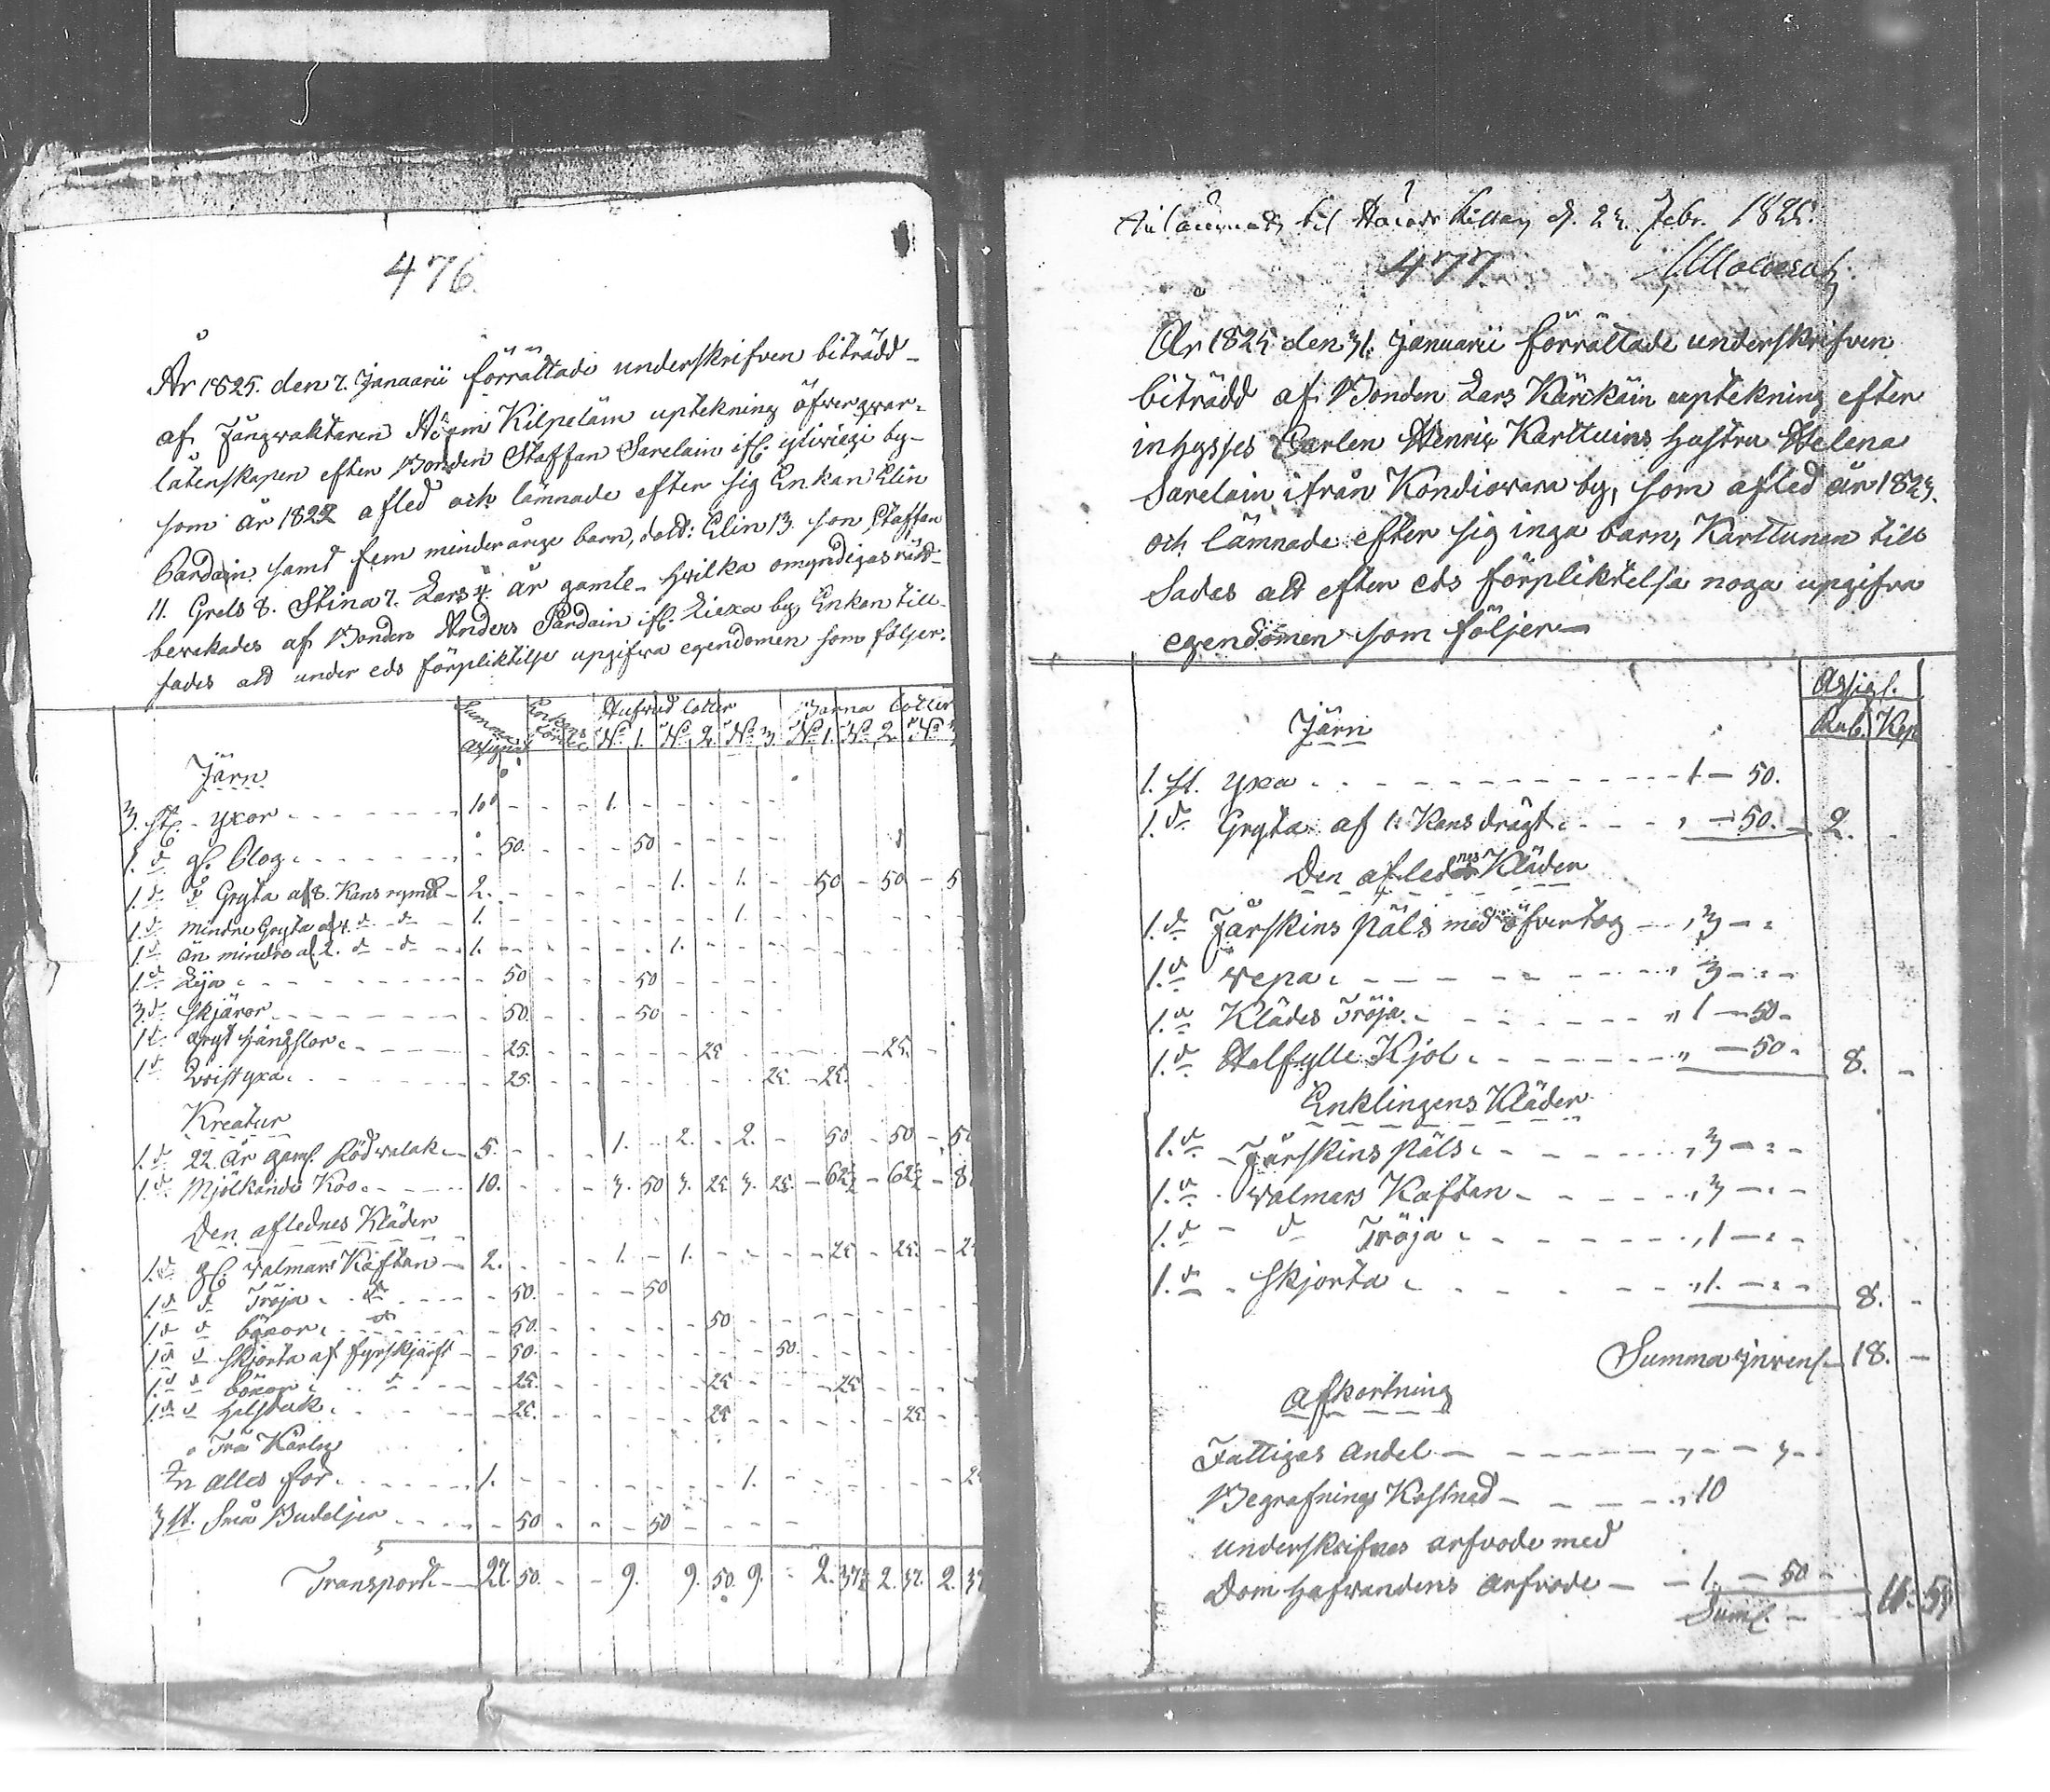 476.
År 1825. den 7. Januarii förrättade underskrifven biträdd
af Fångvaktaren Kilpeläin uptekning öfver qvar-
låtenskapen efter Bonden Staffan Sarelain ifr. by
som år 1822 afled och lämnade efter sig Enkan Elin
Pardain samt fem minderårige barn, dott: Elin 13. son Staffan
11. Grels 8. Stina 7. Lars 4. år gamle – hvilka omyndigas rätt
bevakades af Bonden Anders Pardain ifr. Liexa by, Enkan till-
sades att under eds förpliktilse upgifva egendomen som följer.
Summa Enkans Hufvud Lotter Barna Lotter
No 1. No 2. No 3. No 1. No 2. No
Järn
3. st. yxor 10 1.
1. d gl. Plog 50. 50
1. d d Gryta af 8. Kans rymd 2. 1. 1. 50 50 5
1. d mindre Gryta af 4. d d 1. 1.
1. d än mindre af 2. d d 1. 1.
1. d Lija 50 50
3. d skjäror 50. 50
1 d hängslor 25. 25 25.
1 d yxa 25. 25. 25.
Kreatur
1. d 22 år gaml. Röd valak 5. 1. 2. 2. 50 50 50
1. d Mjölkande Koo 10. 3. 50 3. 25 3. 25. 62½ 62½ 8
Den aflednes Kläder
1. d gl. valmars Kaftan 2. 1. 1. 25 25. 2
1 d d Tröja d 50. 50
1 d d böxor d 50. 50
1. d d skjorta af fyrskjäft 50. 50.
1. d d böxor d 25. 25 25
1. d d halsduk 25. 25 25.
Trä Käriln
In alles för 1. 1. 2
3 st. små Budeljer 50 50
Transport 27 50. 9. 9. 50. 9. 2. 37½ 2. 37. 2. 37
til Härads Rätten d. 24. Febr. 1825.
477.
År 1825 den 31. Januarii förrättade underskrifven
biträdd af Bonden Lars Kärkäin uptekning efter
inhyses Carlen Henric Karttuins hustru Helena
Sarelain ifrån Kondiovara by, som afled år 1824.
och lämnade efter sig inga barn, Karttunen till
sades att efter eds förpliktelse noga upgifva
egendomen som följer –
Assigl.
Rub. Kop
Järn
1. st. yxa 1 – 50.
1. d Gryta af 1. Kans drägt – 50. 2. -
Den aflednes Kläder
1. d Fårskins päls med öfvertog 3 –
1. d vepa 3 –
1. d Klädes Tröja 1 – 50 –
1. d Halfylle Kjol – 50 – 8. -
Enklingens Kläder
1. d Fårskins päls 3 –
1. d valmars Kaftan 3 –
1. d d Tröja 1 –
1. d skjorta 1. – 8. -
Summa 18. –
afkortning
Fattiges andel
Begrafnings Kostnad 10
underskrifnes arfvode med
Dom hafvandens arfvode – 1. – 50 –